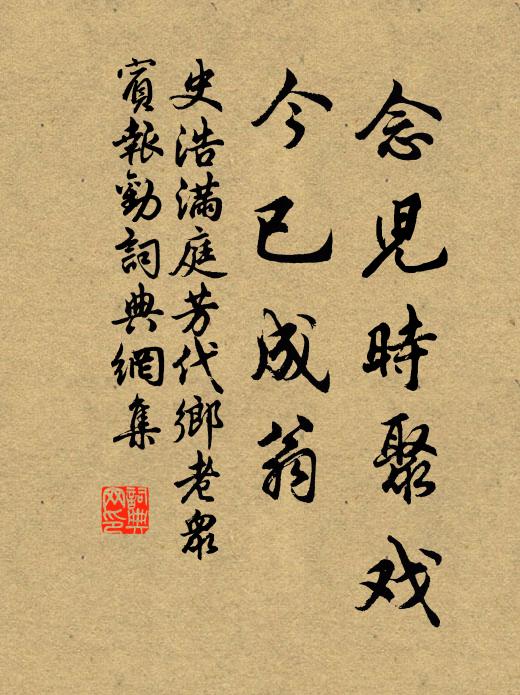 念兒時聚戏
今已成翁
史浩满庭芳代鄉老衆
賓報勤詞典網集
詞典网印